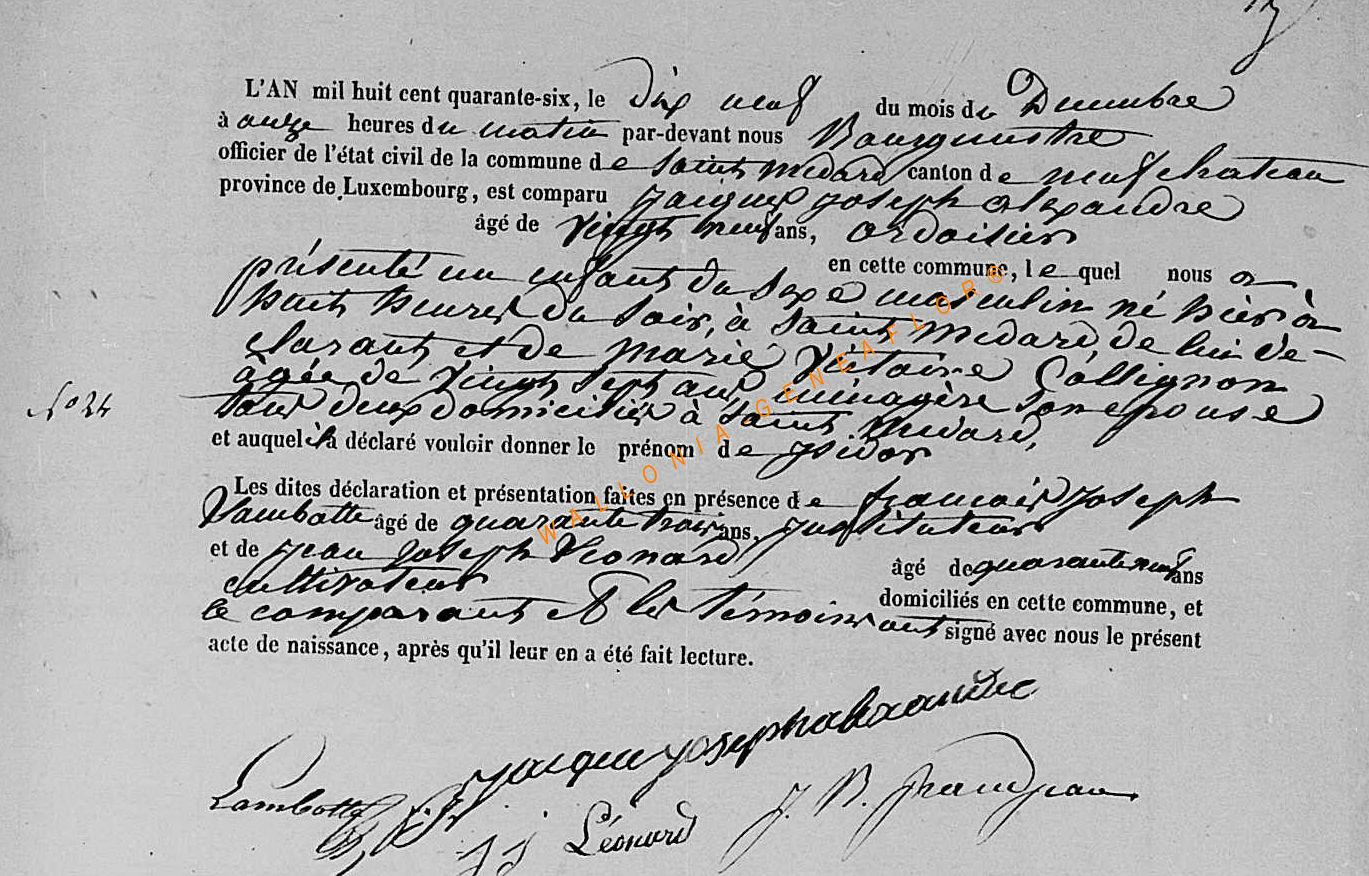 L'AN mil huit cent quarante-six, le dix neuf du mois de Decembre
à onze heures du matin par-devant nous Bourgmestre
officier de l'état civil de la commune de Saint Medard canton de neufchateau
province de Luxembourg, est comparu Jacques Joseph alexandre
âgé de vingt neuf ans, ardoisier
en cette commune, le quel nous a
présenté un enfant du sexe masculin né hier à
huit heures du soir, à Saint Medard de lui dé-
clarant et de Marie Victoire Collignon
âgée de vingt sept ans, ménagère son epouse
tous deux domiciliés à Saint Medard,
N° 24
et auquel il a déclaré vouloir donner le prénom de isidor
Les dites déclaration et présentation faites en présence de francois Joseph
Lambotte âgé de quarante trois ans, instituteur
et de jean Joseph Leonard âgé de quarante neuf ans
cultivateur domiciliés en cette commune, et
le comparant et les témoins ont signé avec nous le présent
acte de naissance, après qu'il leur en a été fait lecture.
Jacque joseph alexandre
Lambotte
J J Léonard
J. B. Grandjean
WALLONIA GENEAFLORE